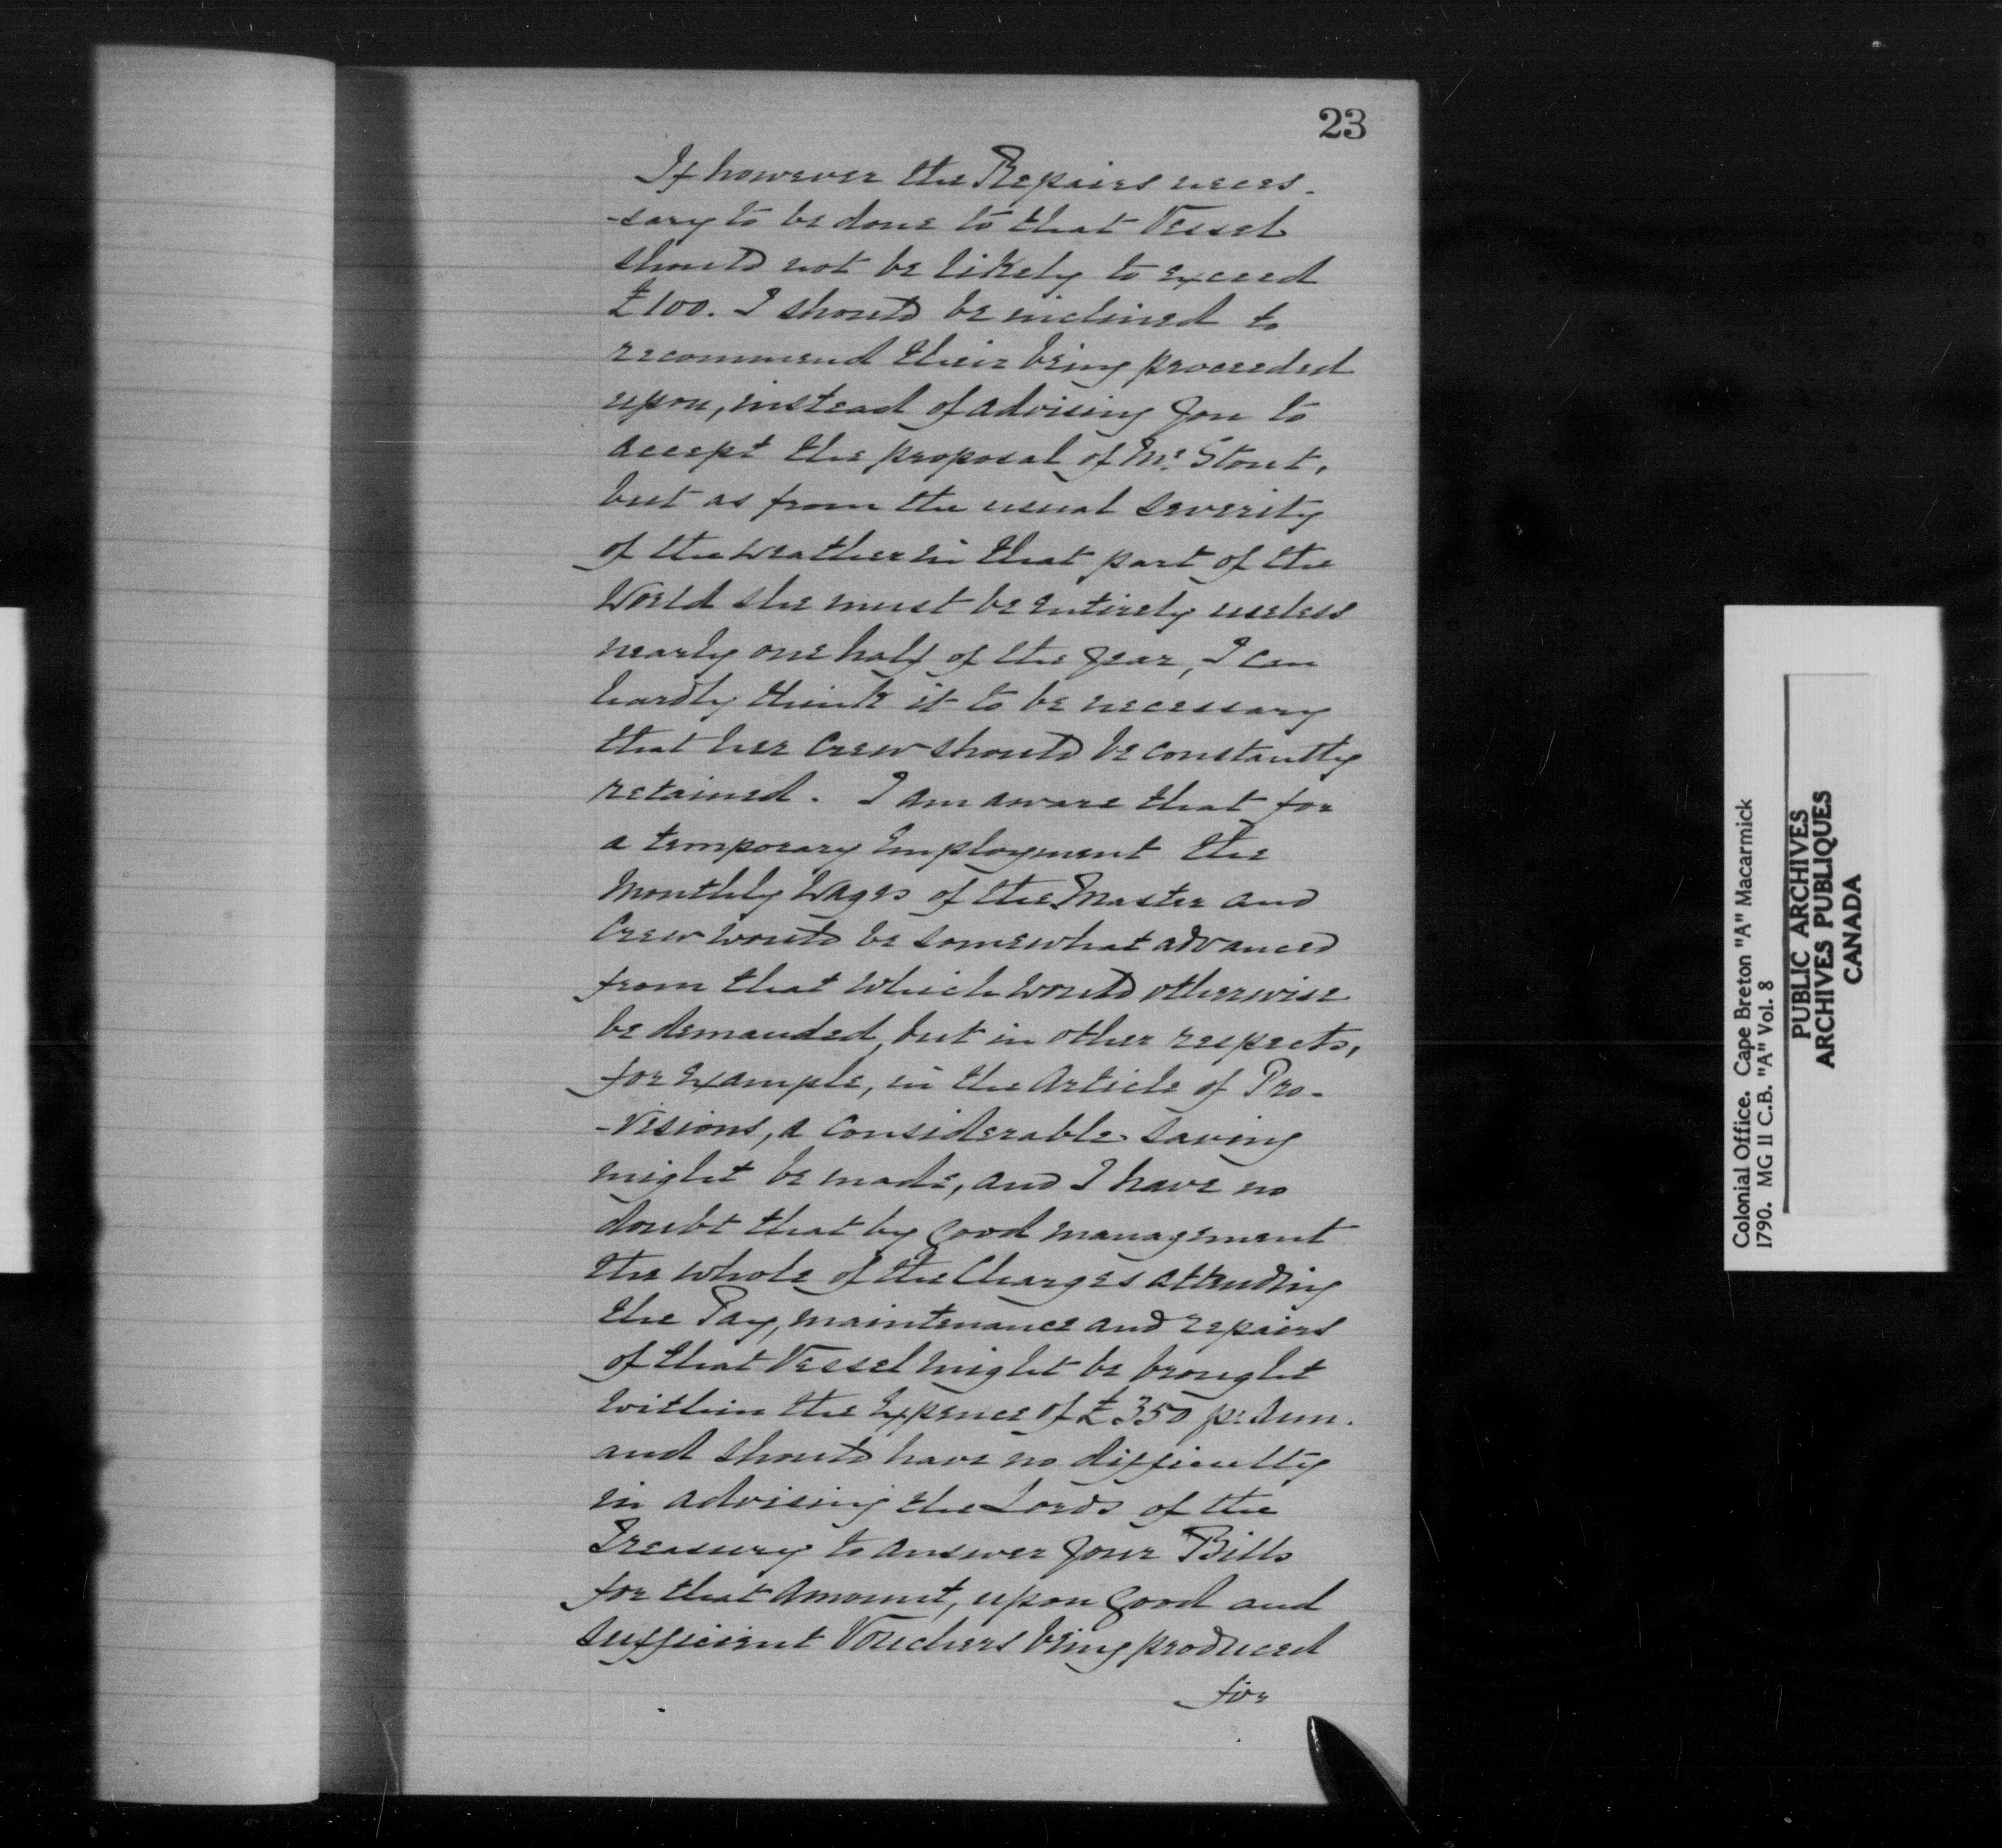 23
If however the Repairs neces-
-sary to be done to that Vessel
should not be likely to exceed
£100. I should be inclined to
recommend their being proceeded
upon, instead of advising you to
accept the proposal of Mr. Stout,
but as from the usual severity
of the weather in that part of the
World she must be entirely useless
nearly one half of the year, I can
hardly think it to be necessary
that her crew should be constantly
retained. I am aware that for
a temporary Employment the
Monthly Wages of the Master and
Crew would be somewhat advanced
from that which would otherwise
be demanded, but in other respects,
for Example, in the Article of Pro-
-visions, a considerable saving
might be made, and I have no
doubt that by good management
the whole of the Charges attending
the Pay, maintenance and repairs
of that Vessel might be brought
within the Expence of £350 pr. Ann.
and should have no difficulty
in advising the Lords of the
Treasury to answer your Bills
for that Amount, upon good and
sufficient Vouchers being produced
for
Colonial Office. Cape Breton "A" Macarmick
1790. MG 11 C.B. "A" Vol. 8
PUBLIC ARCHIVES
ARCHIVES PUBLIQUES
CANADA